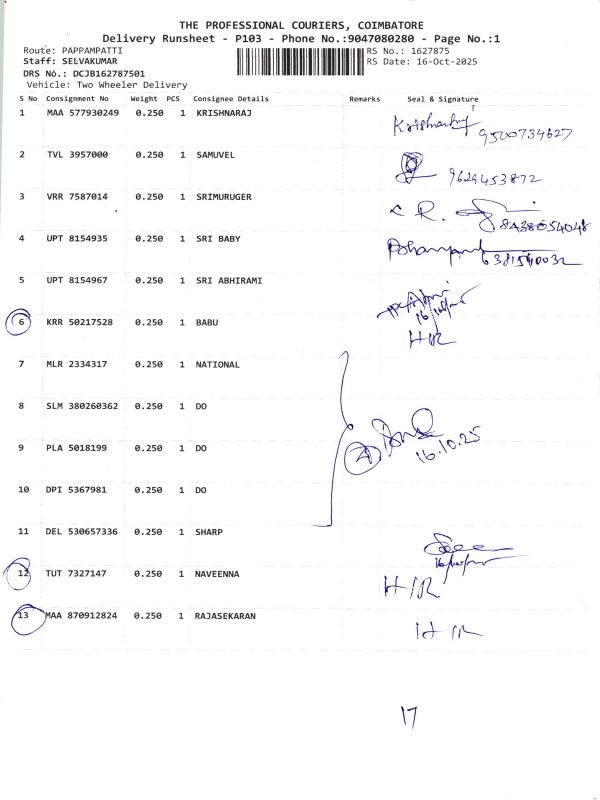 THE PROFESSIONAL COURIERS, COIMBATORE
Delivery Runsheet - P103 - Phone No.:9047080280 - Page No.:1
Route: PAPPAMPATTI RS No.: 1627875
Staff: SELVAKUMAR RS Date: 16-Oct-2025
DRS No.: DCJB162787501
Vehicle: Two Wheeler Delivery
S No Consignment No Weight PCS Consignee Details Remarks Seal & Signature
1 MAA 577930249 0.250 1 KRISHNARAJ
9500734627
2 TVL 3957000 0.250 1 SAMUVEL
9629453872
3 VRR 7587014 0.250 1 SRIMURUGER
4 UPT 8154935 0.250 1 SRI BABY
5 UPT 8154967 0.250 1 SRI ABHIRAMI
6 KRR 50217528 0.250 1 BABU
7 MLR 2334317 0.250 1 NATIONAL
8 SLM 380260362 0.250 1 DO
9 PLA 5018199 0.250 1 DO
A 16.10.25
10 DPI 5367981 0.250 1 DO
11 DEL 530657336 0.250 1 SHARP
12 TUT 7327147 0.250 1 NAVEENNA
13 MAA 870912824 0.250 1 RAJASEKARAN
17